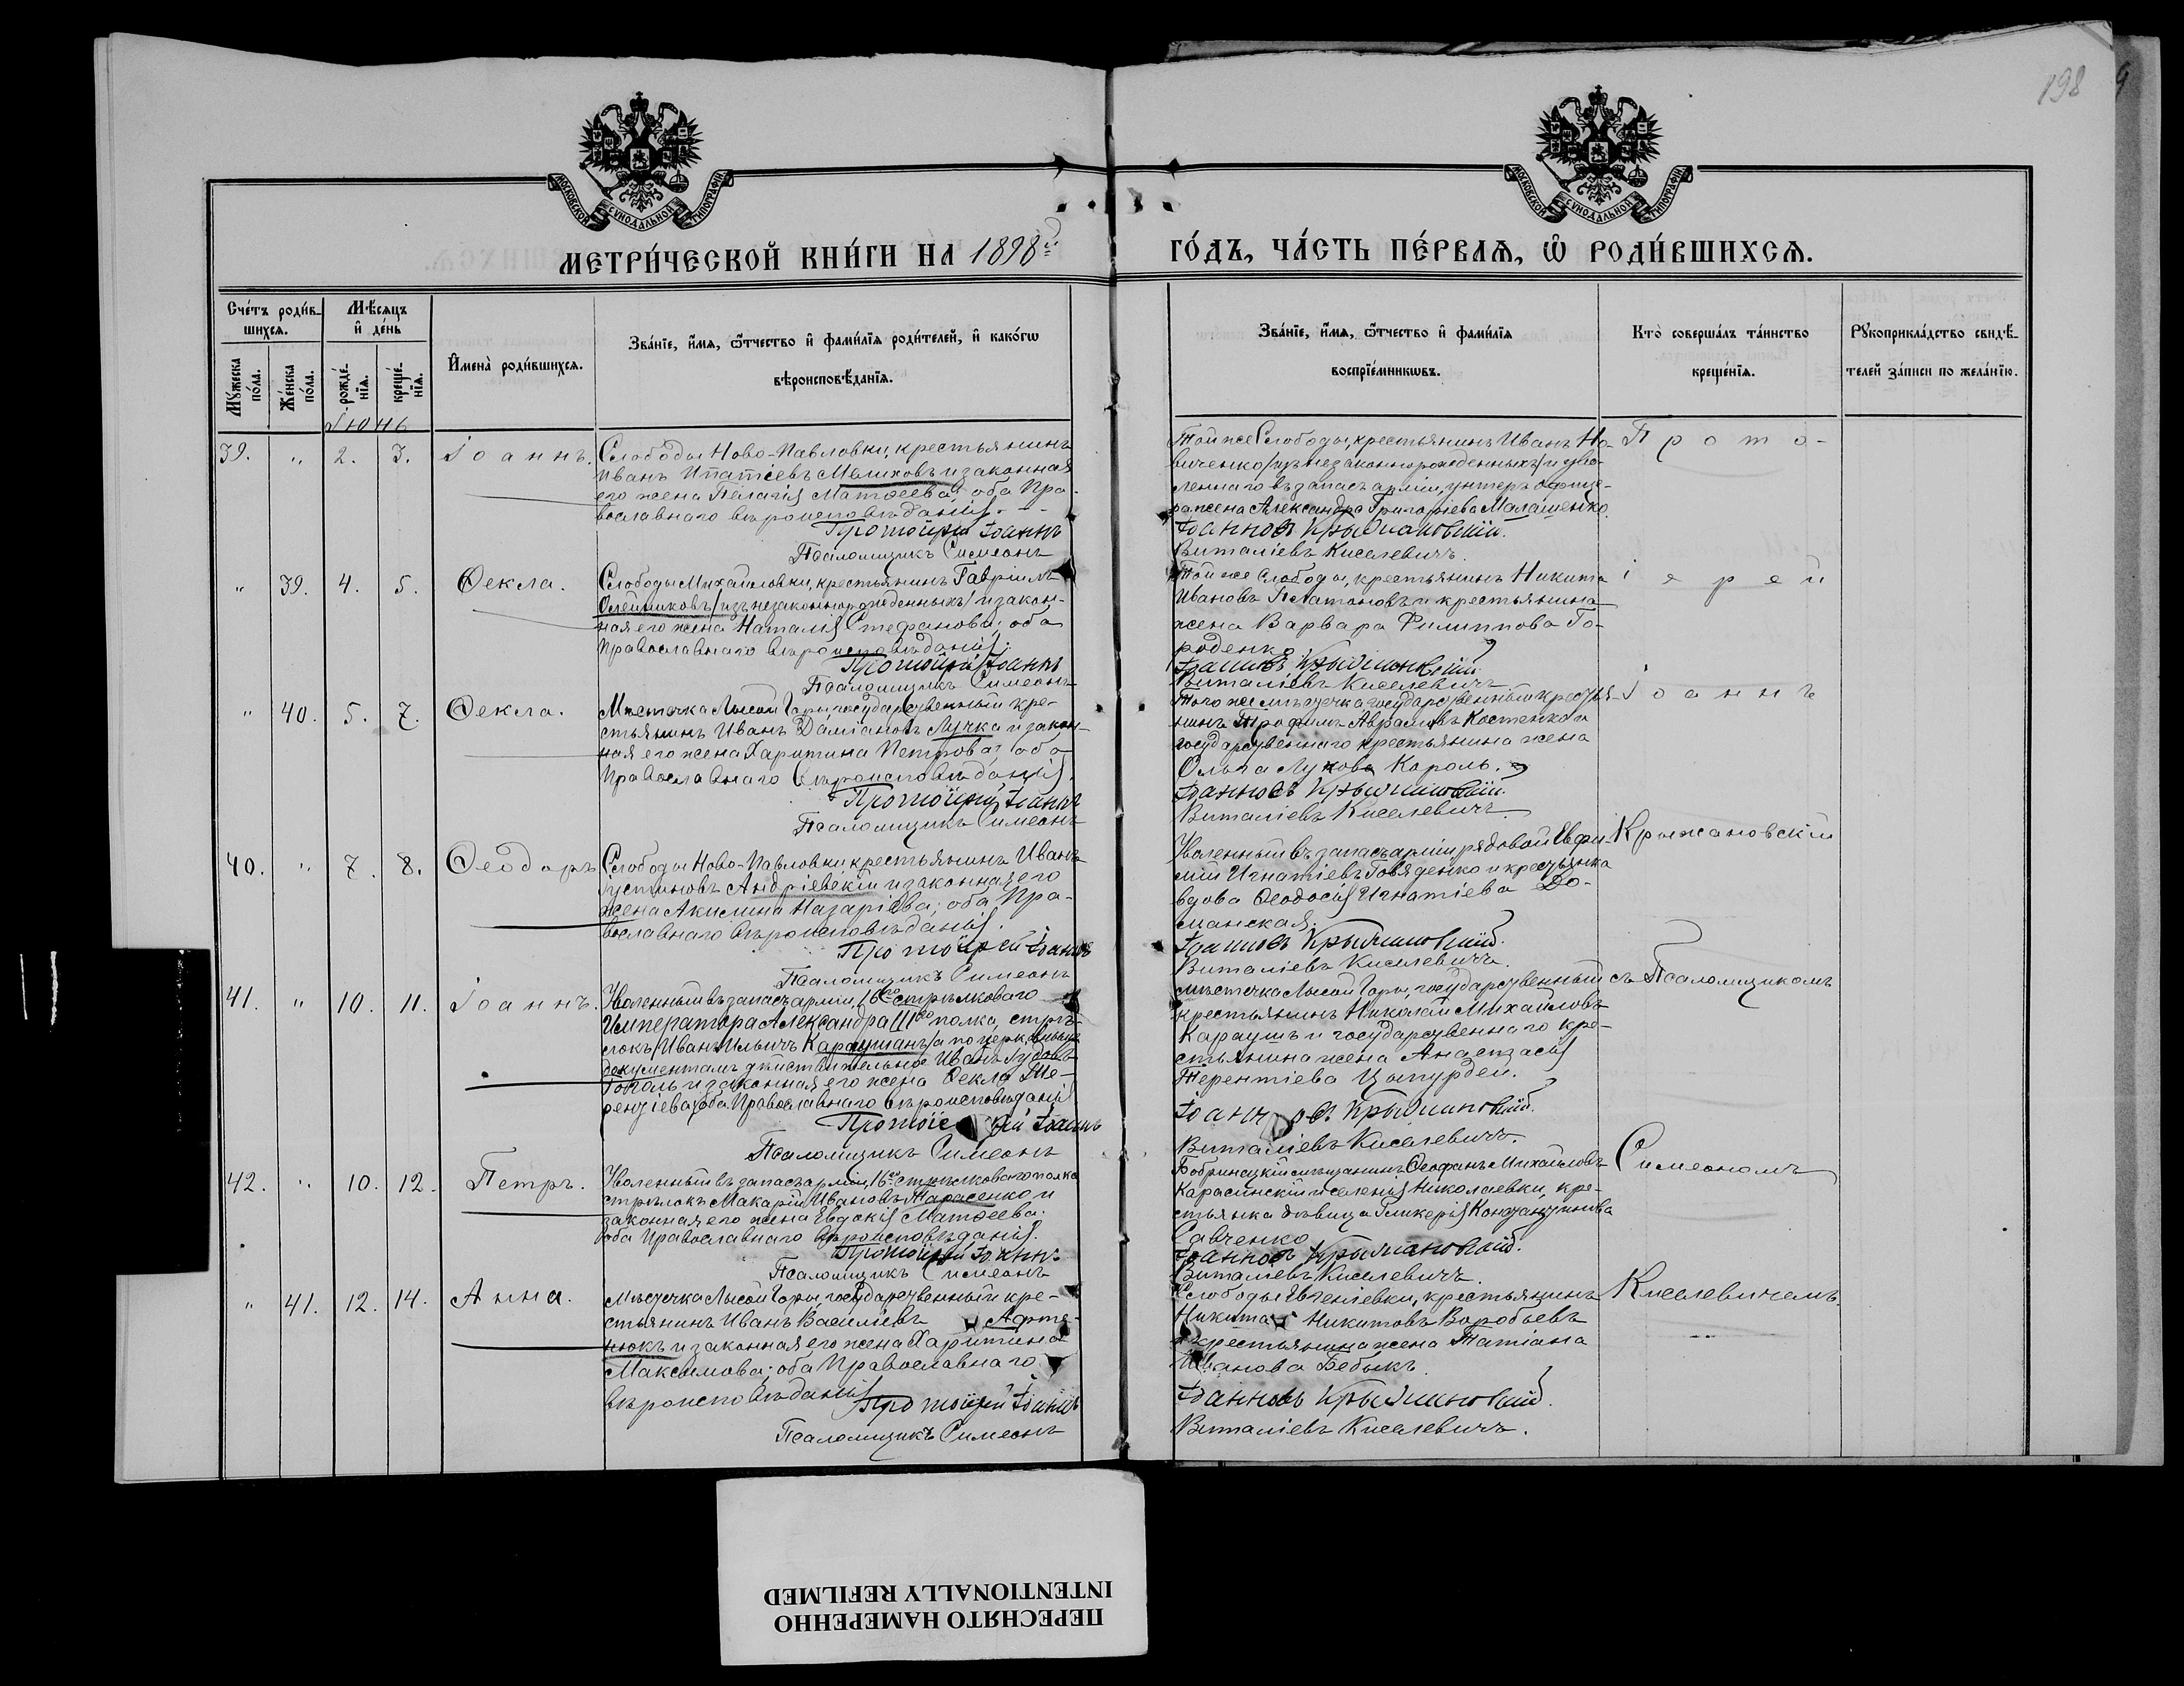 198
9
МОСКОВСКОЙ СѴНОДАЛЬНОЙ ТИПОГРАФІИ
МОСКОВСКОЙ СѴНОДАЛЬНОЙ ТИПОГРАФІИ
МЕТРИ́ЧЕСКОЙ КНИ́ГИ НА 1898й
ГО́ДЪ, ЧА́СТЬ ПЕ́РВАѦ, Ѡ РОДИ́ВШИХСѦ.
Сче́тъ роди́вшихсѧ.
Мꙋ́жеска по́ла.
Же́нска по́ла.
Мѣ́сѧцъ и҆ де́нь
рожде́нїѧ.
креще́нїѧ.
И҆мена̀ роди́вшихсѧ.
Зва́нїе, и҆́мѧ, ѻ҆́тчество и҆ фами́лїѧ роди́телей, и҆ како́гѡ
вѣроисповѣ́данїѧ.
Зва́нїе, и҆́мѧ, ѻ҆́тчество и҆ фами́лїѧ
воспрїе́мникѡвъ.
Кто̀ соверша́лъ та́инство
креще́нїѧ.
Рꙋкоприкла́дство свидѣ́-
телей за́писи по жела́нїю.
Іюнь
39. " 2. 3. Іоаннъ.
Слободы Ново-Павловки, крестьянинъ
Иванъ Ипатіевъ Мелиховъ и законная
его жена Пелагія Матѳеева; оба Пра-
вославнаго вѣроисповѣданія. - -
Протоіерей Іоаннъ
Псаломщикъ Симеонъ
Той же Слободы, крестьянинъ Иванъ Но-
виченко /изъ незаконнорожденныхъ/ и уво-
леннаго въ запасъ арміи, унтеръ офице-
ра жена Александра Григоріева Малашенко.
Іоанновъ Крыжановскій.
Виталіевъ Киселевичъ.
Прото-
" 39. 4. 5. Ѳекла.
Слободы Михайловки, крестьянинъ Гавріилъ
Олейниковъ /изъ незаконнорожденныхъ/ и закон-
ная его жена Наталія Стефанова; оба
Православнаго вѣроисповѣданія.
Протоіерей Іоаннъ
Псаломщикъ Симеонъ
Той же слободы, крестьянинъ Никита
Ивановъ Платоновъ и крестьянина
жена Варвара Филиппова Го-
роденко
Іоанновъ Крыжановскій.
Виталіевъ Киселевичъ
іерей
" 40. 5. 7. Ѳекла.
Мѣстечка Лысой Горы, государственный кре-
стьянинъ Иванъ Даміановъ Лучка и закон-
ная его жена Харитина Петрова; оба
Православнаго вѣроисповѣданія.
Протоіерей Іоаннъ
Псаломщикъ Симеонъ
Того же мѣстечка государственный крестья-
нинъ Трофимъ Аврамовъ Костенко и
государственнаго крестьянина жена
Ольга Лукова Король.
Іоанновъ Крыжановскій.
Виталіевъ Киселевичъ.
Іоаннъ
40. " 7. 8. Ѳеодоръ
Слободы Ново-Павловки крестьянинъ Иванъ
Іустиновъ Андріевскій и законная его
жена Акилина Назаріева; оба Пра-
вославнаго вѣроисповѣданія.
Протоіерей Іоаннъ
Псаломщикъ Симеонъ
Уволенный въ запасъ арміи рядовой Евфи-
мій Игнатіевъ Говяденко и крестьянка
вдова Ѳеодосія Игнатіева До-
манская.
Іоанновъ Крыжановскій.
Виталіевъ Киселевичъ.
Крыжановскій
41. " 10. 11. Іоаннъ.
Уволенный въ запасъ арміи, 16го стрѣлковаго
Императора Александра IIIго полка, стрѣ-
локъ /Иванъ Ильичъ Караушанъ/ а по церковнымъ
документамъ дѣйствительно Иванъ
и законная его жена Ѳекла Те-
рентіева; оба Православнаго вѣроисповѣданія
Протоіерей Іоаннъ
Псаломщикъ Симеонъ
мѣстечка Лысой Горы, государственный
крестьянинъ Николай Михайловъ
Караушъ и государственнаго кре-
стьянина жена Анастасія
Терентіева Цыпурдей.
Іоанновъ Крыжановскій.
Виталіевъ Киселевичъ.
съ Псаломщикомъ
42. " 10. 12. Петръ.
Уволенный въ запасъ арміи, 16го стрѣлковаго полка
стрѣлокъ Макарій Ивановъ Тарасенко и
законная его жена Евдокія Матѳеева.
оба Православнаго вѣроисповѣданія.
Протоіерей Іоаннъ
Псаломщикъ Симеонъ
Бобринецкій мѣщанинъ Ѳеофанъ Михайловъ
Карасинскій и селенія Николаевки, кре-
стьянка дѣвица Гликерія Константинова
Савченко
Іоанновъ Крыжановскій.
Виталіевъ Киселевичъ.
Симеономъ
" 41. 12. 14. Анна.
Мѣстечка Лысой Горы, государственный кре-
стьянинъ Иванъ Василіевъ Афте-
нюкъ и законная его жена Харитина
Максимова; оба Православнаго
вѣроисповѣданія
Протоіерей Іоаннъ
Псаломщикъ Симеонъ
Слободы Евгеніевки, крестьянинъ
Никита Никитовъ Воробьевъ
и крестьянина жена Татіана
Иванова Бебыкъ.
Іоанновъ Крыжановскій.
Виталіевъ Киселевичъ.
Киселевичемъ.
ПЕРЕСНЯТО НАМЕРЕННО
INTENTIONALLY REFILMED